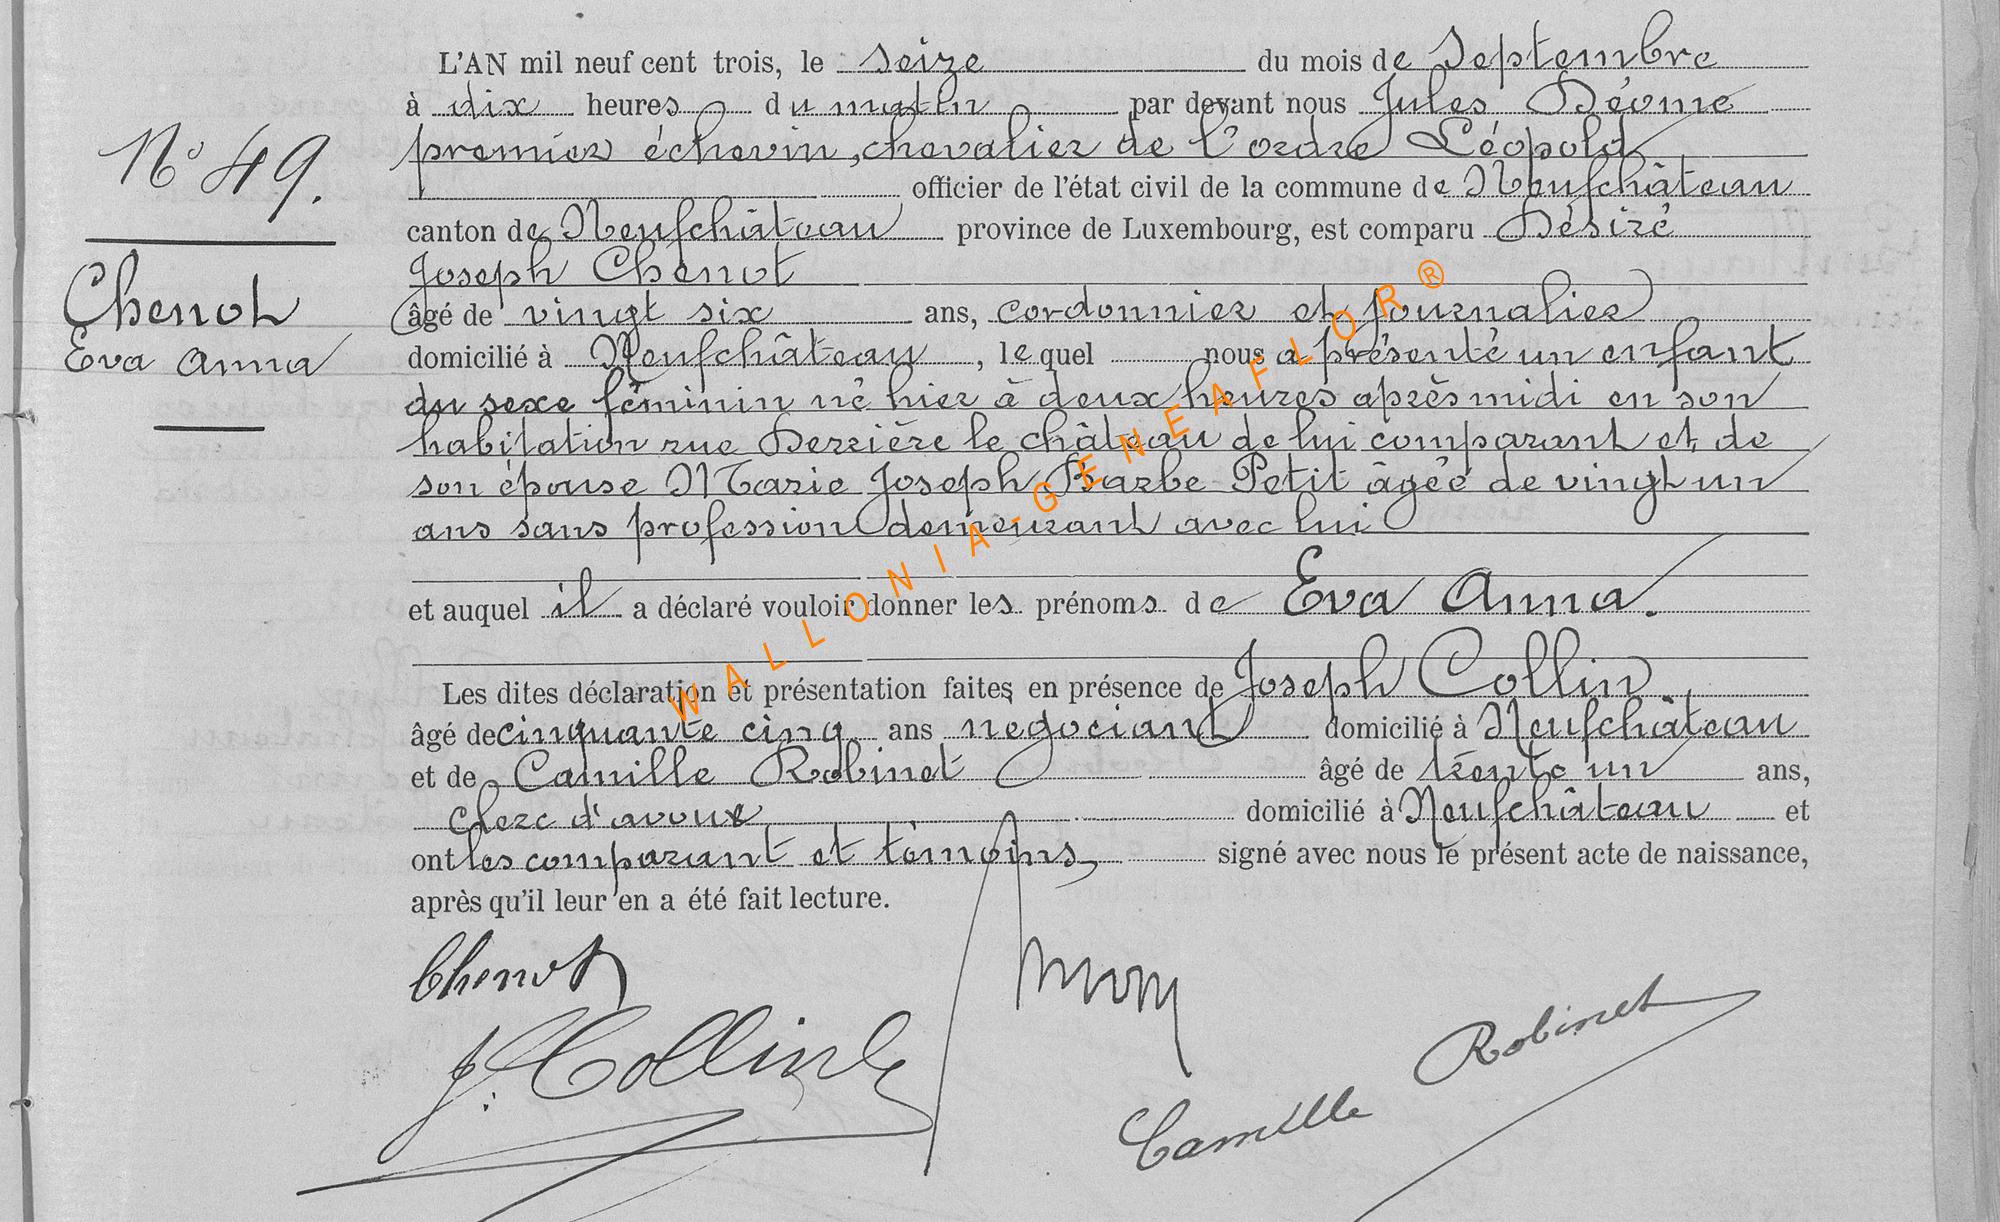 L'AN mil neuf cent trois, le seize du mois de Septembre
à dix heures du matin par devant nous Jules
premier échevin, chevalier de l'ordre Léopold
officier de l'état civil de la commune de Neufchâteau
canton de Neufchâteau province de Luxembourg, est comparu Désiré
Joseph Chenot
âgé de vingt six ans, cordonnier et journalier
domicilié à Neufchâteau, lequel nous a présenté un enfant
du sexe féminin né hier à deux heures après midi en son
habitation rue Derrière le château de lui comparant et de
son épouse Marie Joseph Barbe Petit âgée de vingt un
ans sans profession demeurant avec lui
et auquel il a déclaré vouloir donner les prénoms de Eva Anna.
Les dites déclaration et présentation faites en présence de Joseph Collin,
âgé de cinquante cinq ans negociant domicilié à Neufchâteau
et de Camille Robinet âgé de trente un ans,
clerc d'avoué domicilié à Neufchâteau et
ont les comparant et témoins, signé avec nous le présent acte de naissance,
après qu'il leur en a été fait lecture.
N° 49.
Chenot
Eva Anna
Chenot
J. Collin
Camille Robinet
WALLONIA-GENEAFLOR®